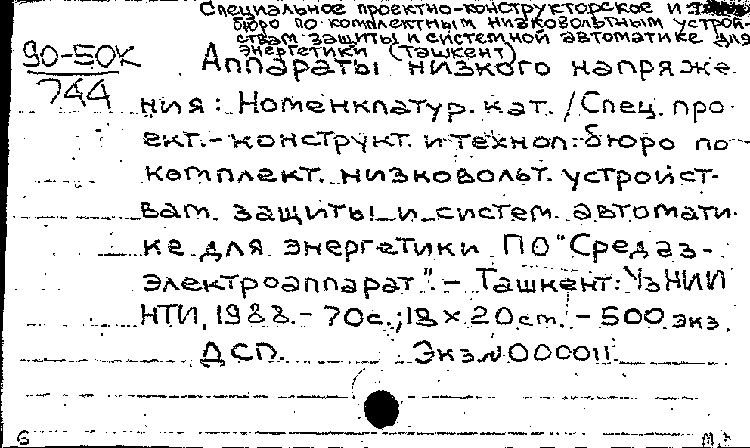 Специальное проектно-конструкторское и
бюро по комплектным низковольтным устрой-
ствам защиты и системной автоматике для
энергетики (Ташкент)
90-50К
744
Аппараты низкого напряже-
ния: Номенклатур. кат. / Спец. про-
ект.-конструкт. и технол. бюро по
комплект. низковольт. устройст-
вам защиты и систем. автомати-
ке для энергетики ПО "Средаз-
электроаппарат". – Ташкент: УзНИИ
НТИ, 1988. – 70с.; 18 × 20 см. – 500 экз.
ДСП. Экз.N 000011
6